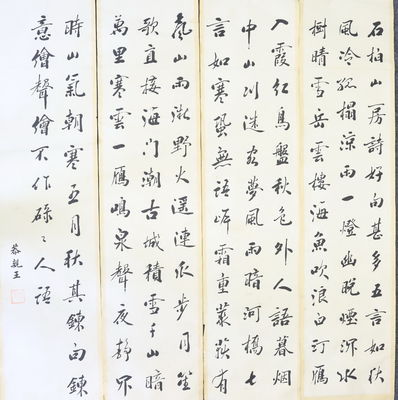 石柏山房詩好句甚多五言如秋
風冷孤榻涼雨一燈幽晚煙沉水
樹晴雪岳雲樓海魚吹浪白汀雁
入霞紅鳥盤秋色外人語暮烟
中山川迷客夢風雨暗河橋七
言如寒蛩無語岸霜重叢有
風山雨漱野火遥連步月笙
歌直接海門潮古城積雪千山暗
萬里寒雲一雁鳴泉聲夜靜
時山氣朝寒五月秋其鍊句鍊
意儈聲儈不作碌々人語
恭親王